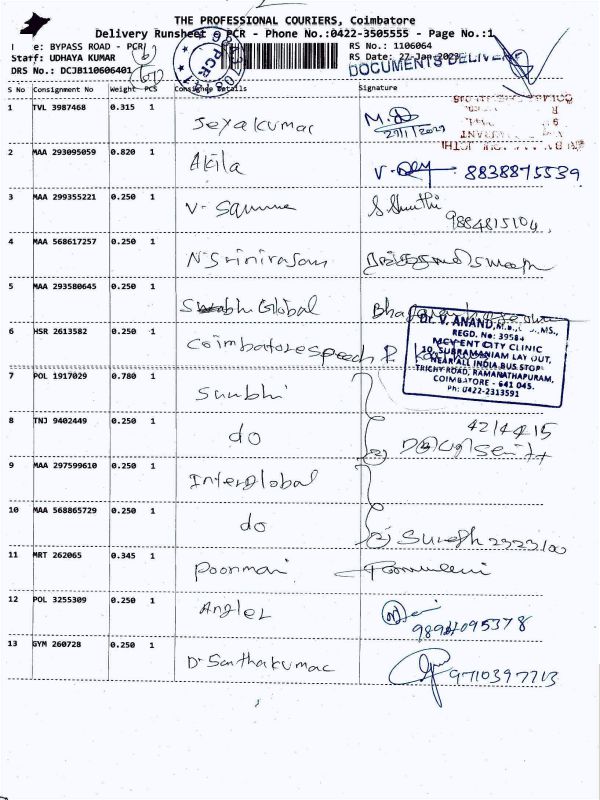 THE PROFESSIONAL COURIERS, Coimbatore
Delivery Runsheet @ PCR - Phone No.:0422-3505555 - Page No.:1
e: BYPASS ROAD - PCR
RS No.: 1106064
Staff: UDHAYA KUMAR
RS Date: 27-Jan-2023
DRS No.: DCJB110606401
DOCUMENTS DELIVER
S No Consignment No Weight PCS Consignee Details Signature
1 TVL 3987468 0.315 1 Jeyakumar
2 MAA 293095059 0.820 1 Akila 8838875539
3 MAA 299355221 0.250 1 V- S. Shuthi
9884815104
4 MAA 568617257 0.250 1 N Srinivasan
5 MAA 293580645 0.250 1 Global
6 HSR 2613582 0.250 1 Coimbatore speech
Dr. V. ANAND, MS.,
REGD. No: 39584
CITY CLINIC
10, SUBRAMANIAM LAY OUT,
NEAR ALL INDIA BUS STOP
TRICHY ROAD, RAMANATHAPURAM,
COIMBATORE - 641 045.
Ph: 0422-2313591
7 POL 1917029 0.780 1 Surabhi
8 TNJ 9402449 0.250 1 do
42/4415
9 MAA 297599610 0.250 1 Interglobal
10 MAA 568865729 0.250 1 do (2) Suresh
11 MRT 262065 0.345 1 Poonmani
12 POL 3255309 0.250 1 Angler
9894095378
13 GYM 260728 0.250 1 Dr Santhakumar 9710397713